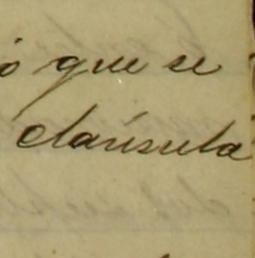 ó que se
clausula